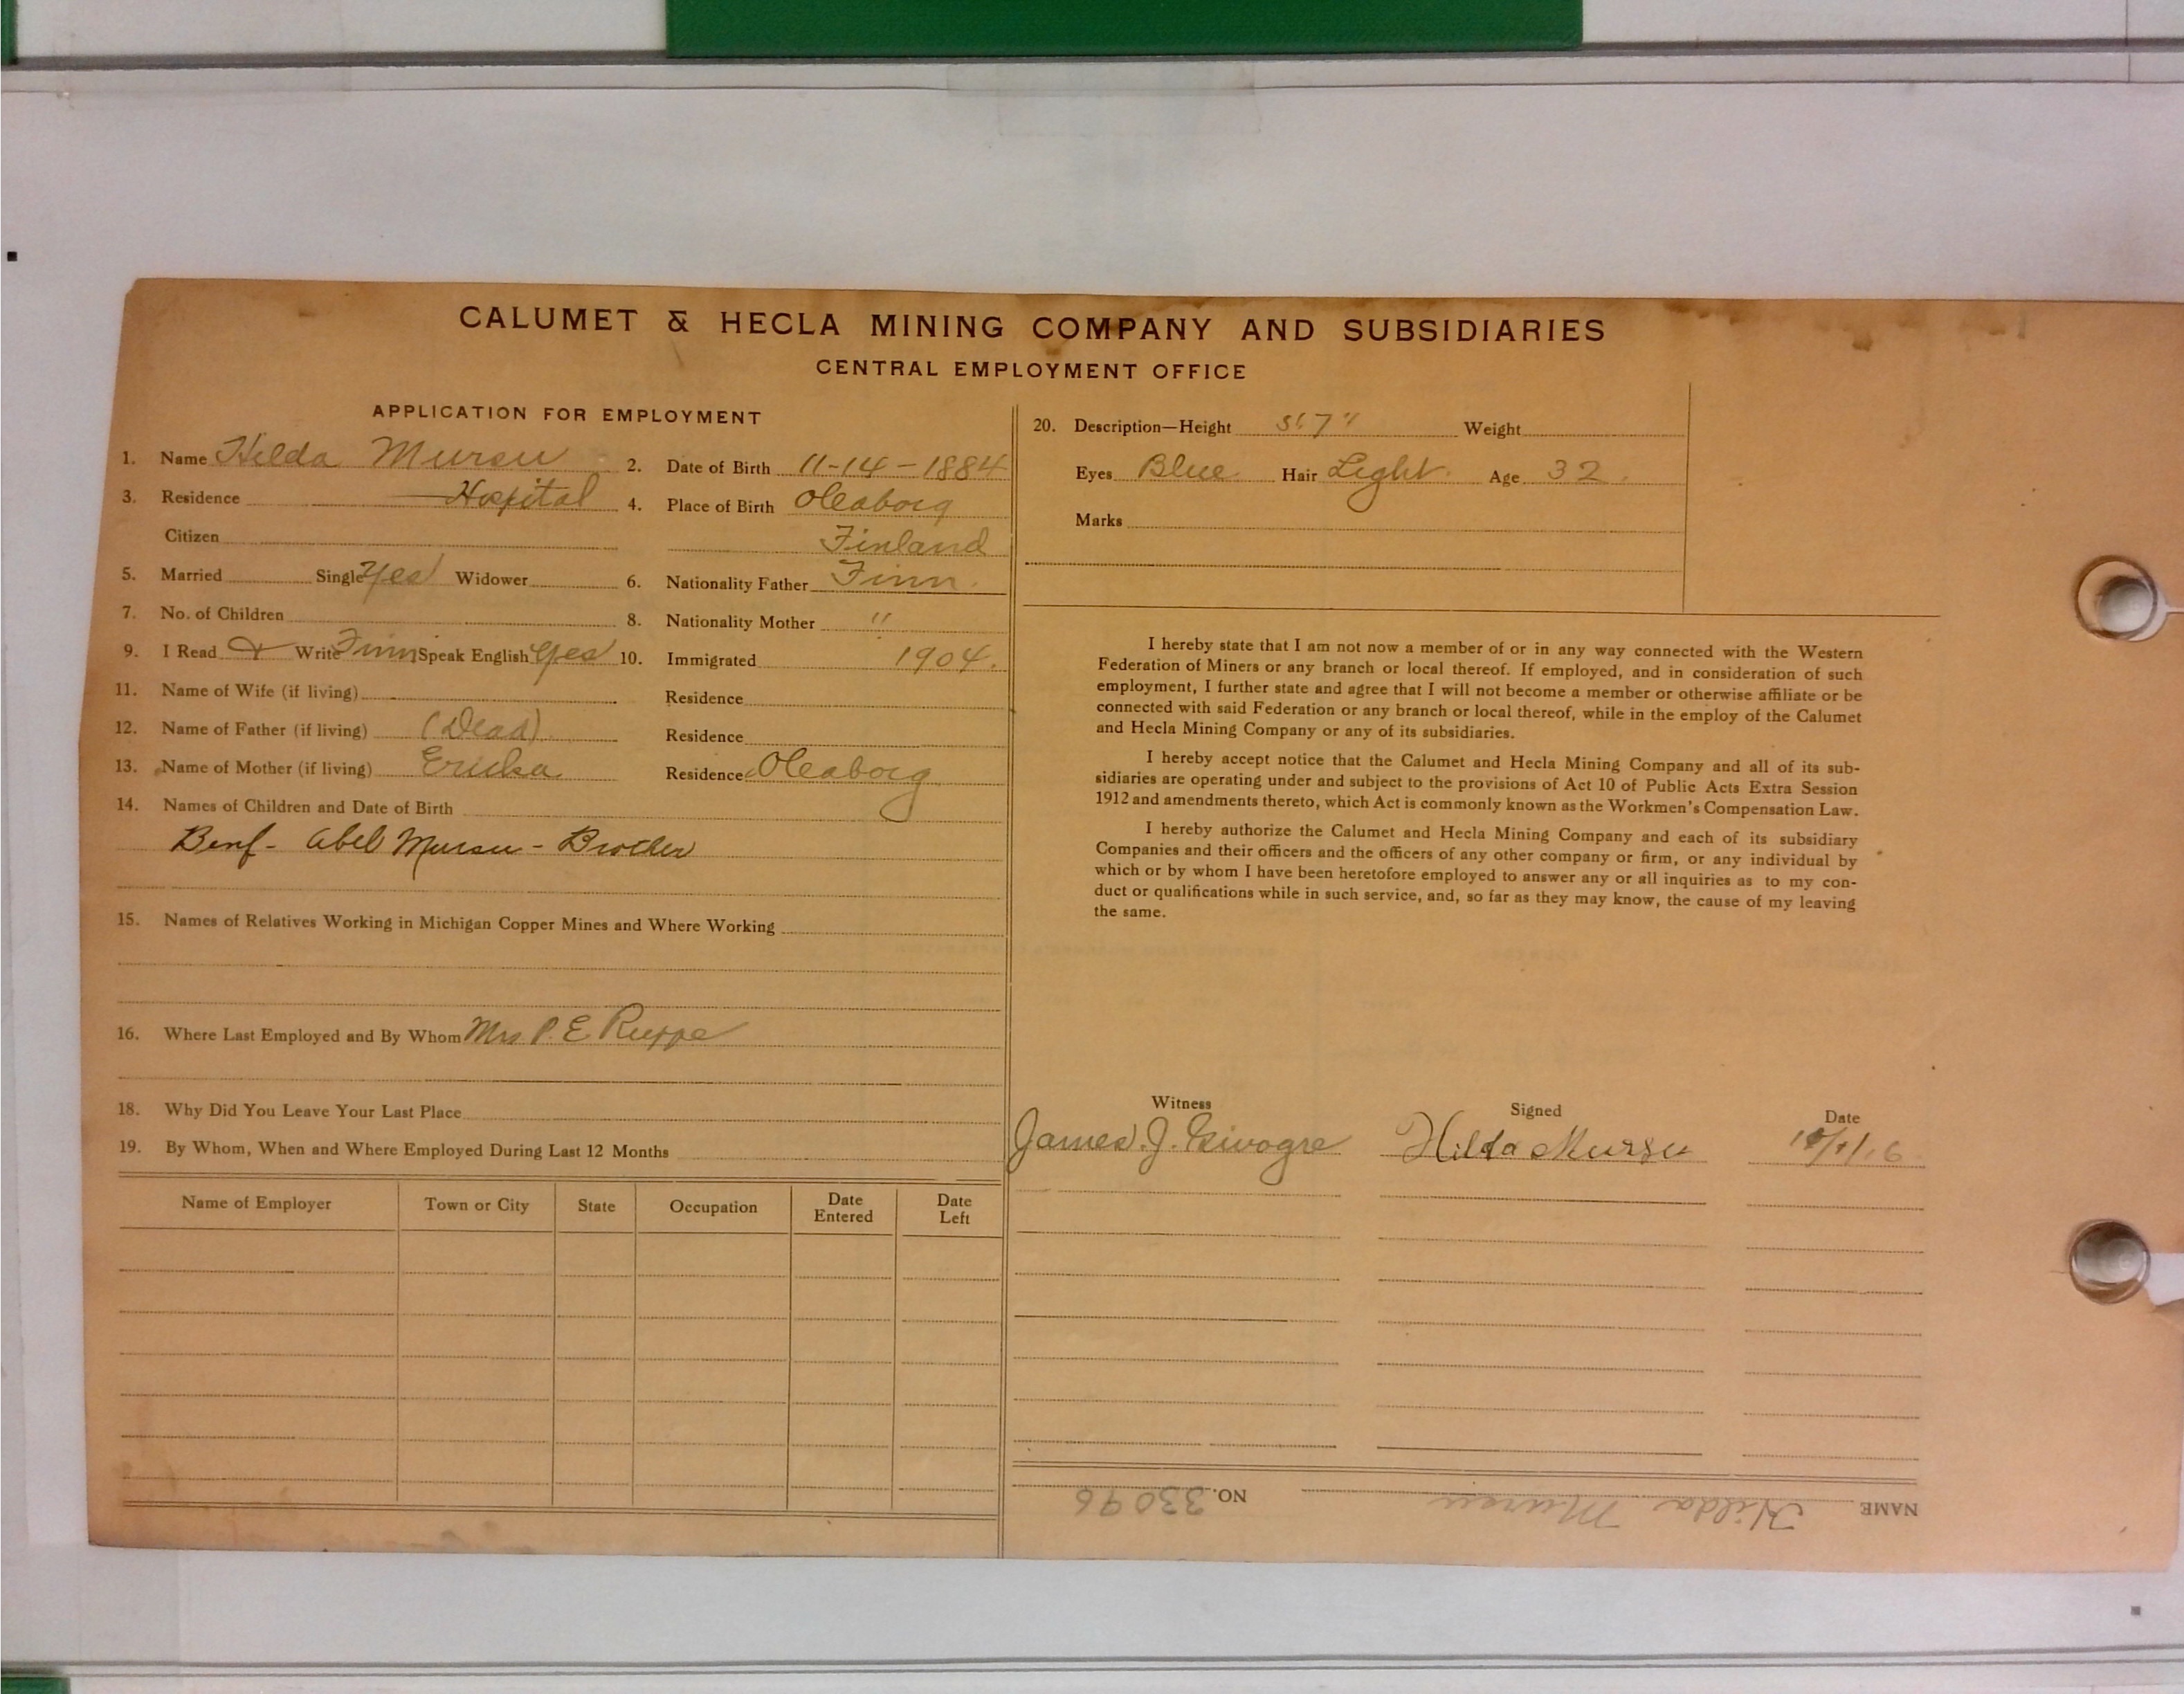 CALUMET & HECLA MINING COMPANY AND SUBSIDIARIES
CENTRAL EMPLOYMENT OFFICE
APPLICATION FOR EMPLOYMENT
1. Name Hilda Mursu 2. Date of Birth 11-14-1884
3. Residence Hospital 4. Place of Birth Oleaborg
Citizen Finland
5. Married Single Yes Widower 6. Nationality Father Finn.
7. No. of Children 8. Nationality Mother "
9. I Read & Write Finn Speak English Yes 10. Immigrated 1904.
11. Name of Wife (if living) Residence
12. Name of Father (if living) (Dead) Residence
13. Name of Mother (if living) Ericka Residence Oleaborg
14. Names of Children and Date of Birth
Benf- Abel Mursu - Brother
15. Names of Relatives Working in Michigan Copper Mines and Where Working
16. Where Last Employed and By Whom Mrs P. E Ruppe
18. Why Did You Leave Your Last Place
19. By Whom, When and Where Employed During Last 12 Months
Name of Employer Town or City State Occupation Date Entered Date Left
20. Description—Height 5' 7" Weight
Eyes Blue Hair Light Age 32.
Marks
I hereby state that I am not now a member of or in any way connected with the Western
Federation of Miners or any branch or local thereof. If employed, and in consideration of such
employment, I further state and agree that I will not become a member or otherwise affiliate or be
connected with said Federation or any branch or local thereof, while in the employ of the Calumet
and Hecla Mining Company or any of its subsidiaries.
I hereby accept notice that the Calumet and Hecla Mining Company and all of its sub-
sidiaries are operating under and subject to the provisions of Act 10 of Public Acts Extra Session
1912 and amendments thereto, which Act is commonly known as the Workmen's Compensation Law.
I hereby authorize the Calumet and Hecla Mining Company and each of its subsidiary
Companies and their officers and the officers of any other company or firm, or any individual by
which or by whom I have been heretofore employed to answer any or all inquiries as to my con-
duct or qualifications while in such service, and, so far as they may know, the cause of my leaving
the same.
Witness Signed Date
James. J. Hilda Mursu
NAME Hilda Mursu NO. 33096